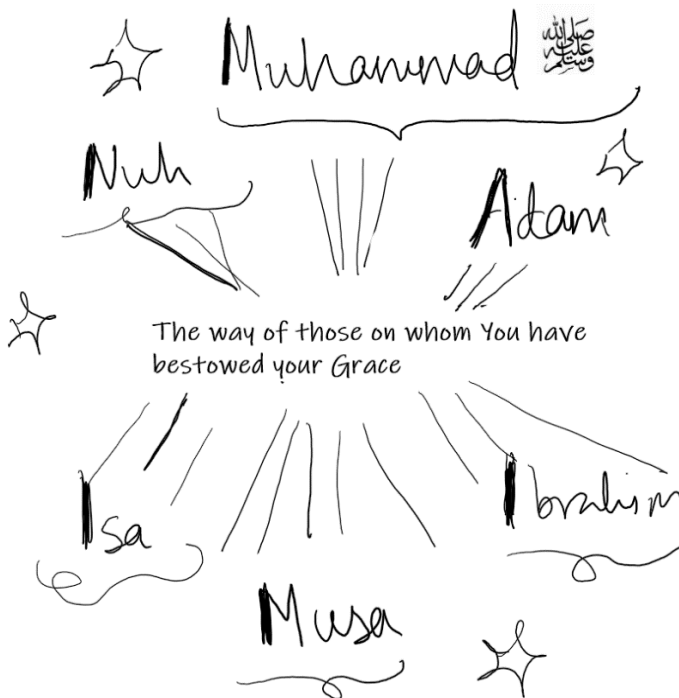 Muhammad صلى الله عليه وسلم
Nuh
Adam
The way of those on whom You have
bestowed your Grace
Isa
Ibrahim
Musa